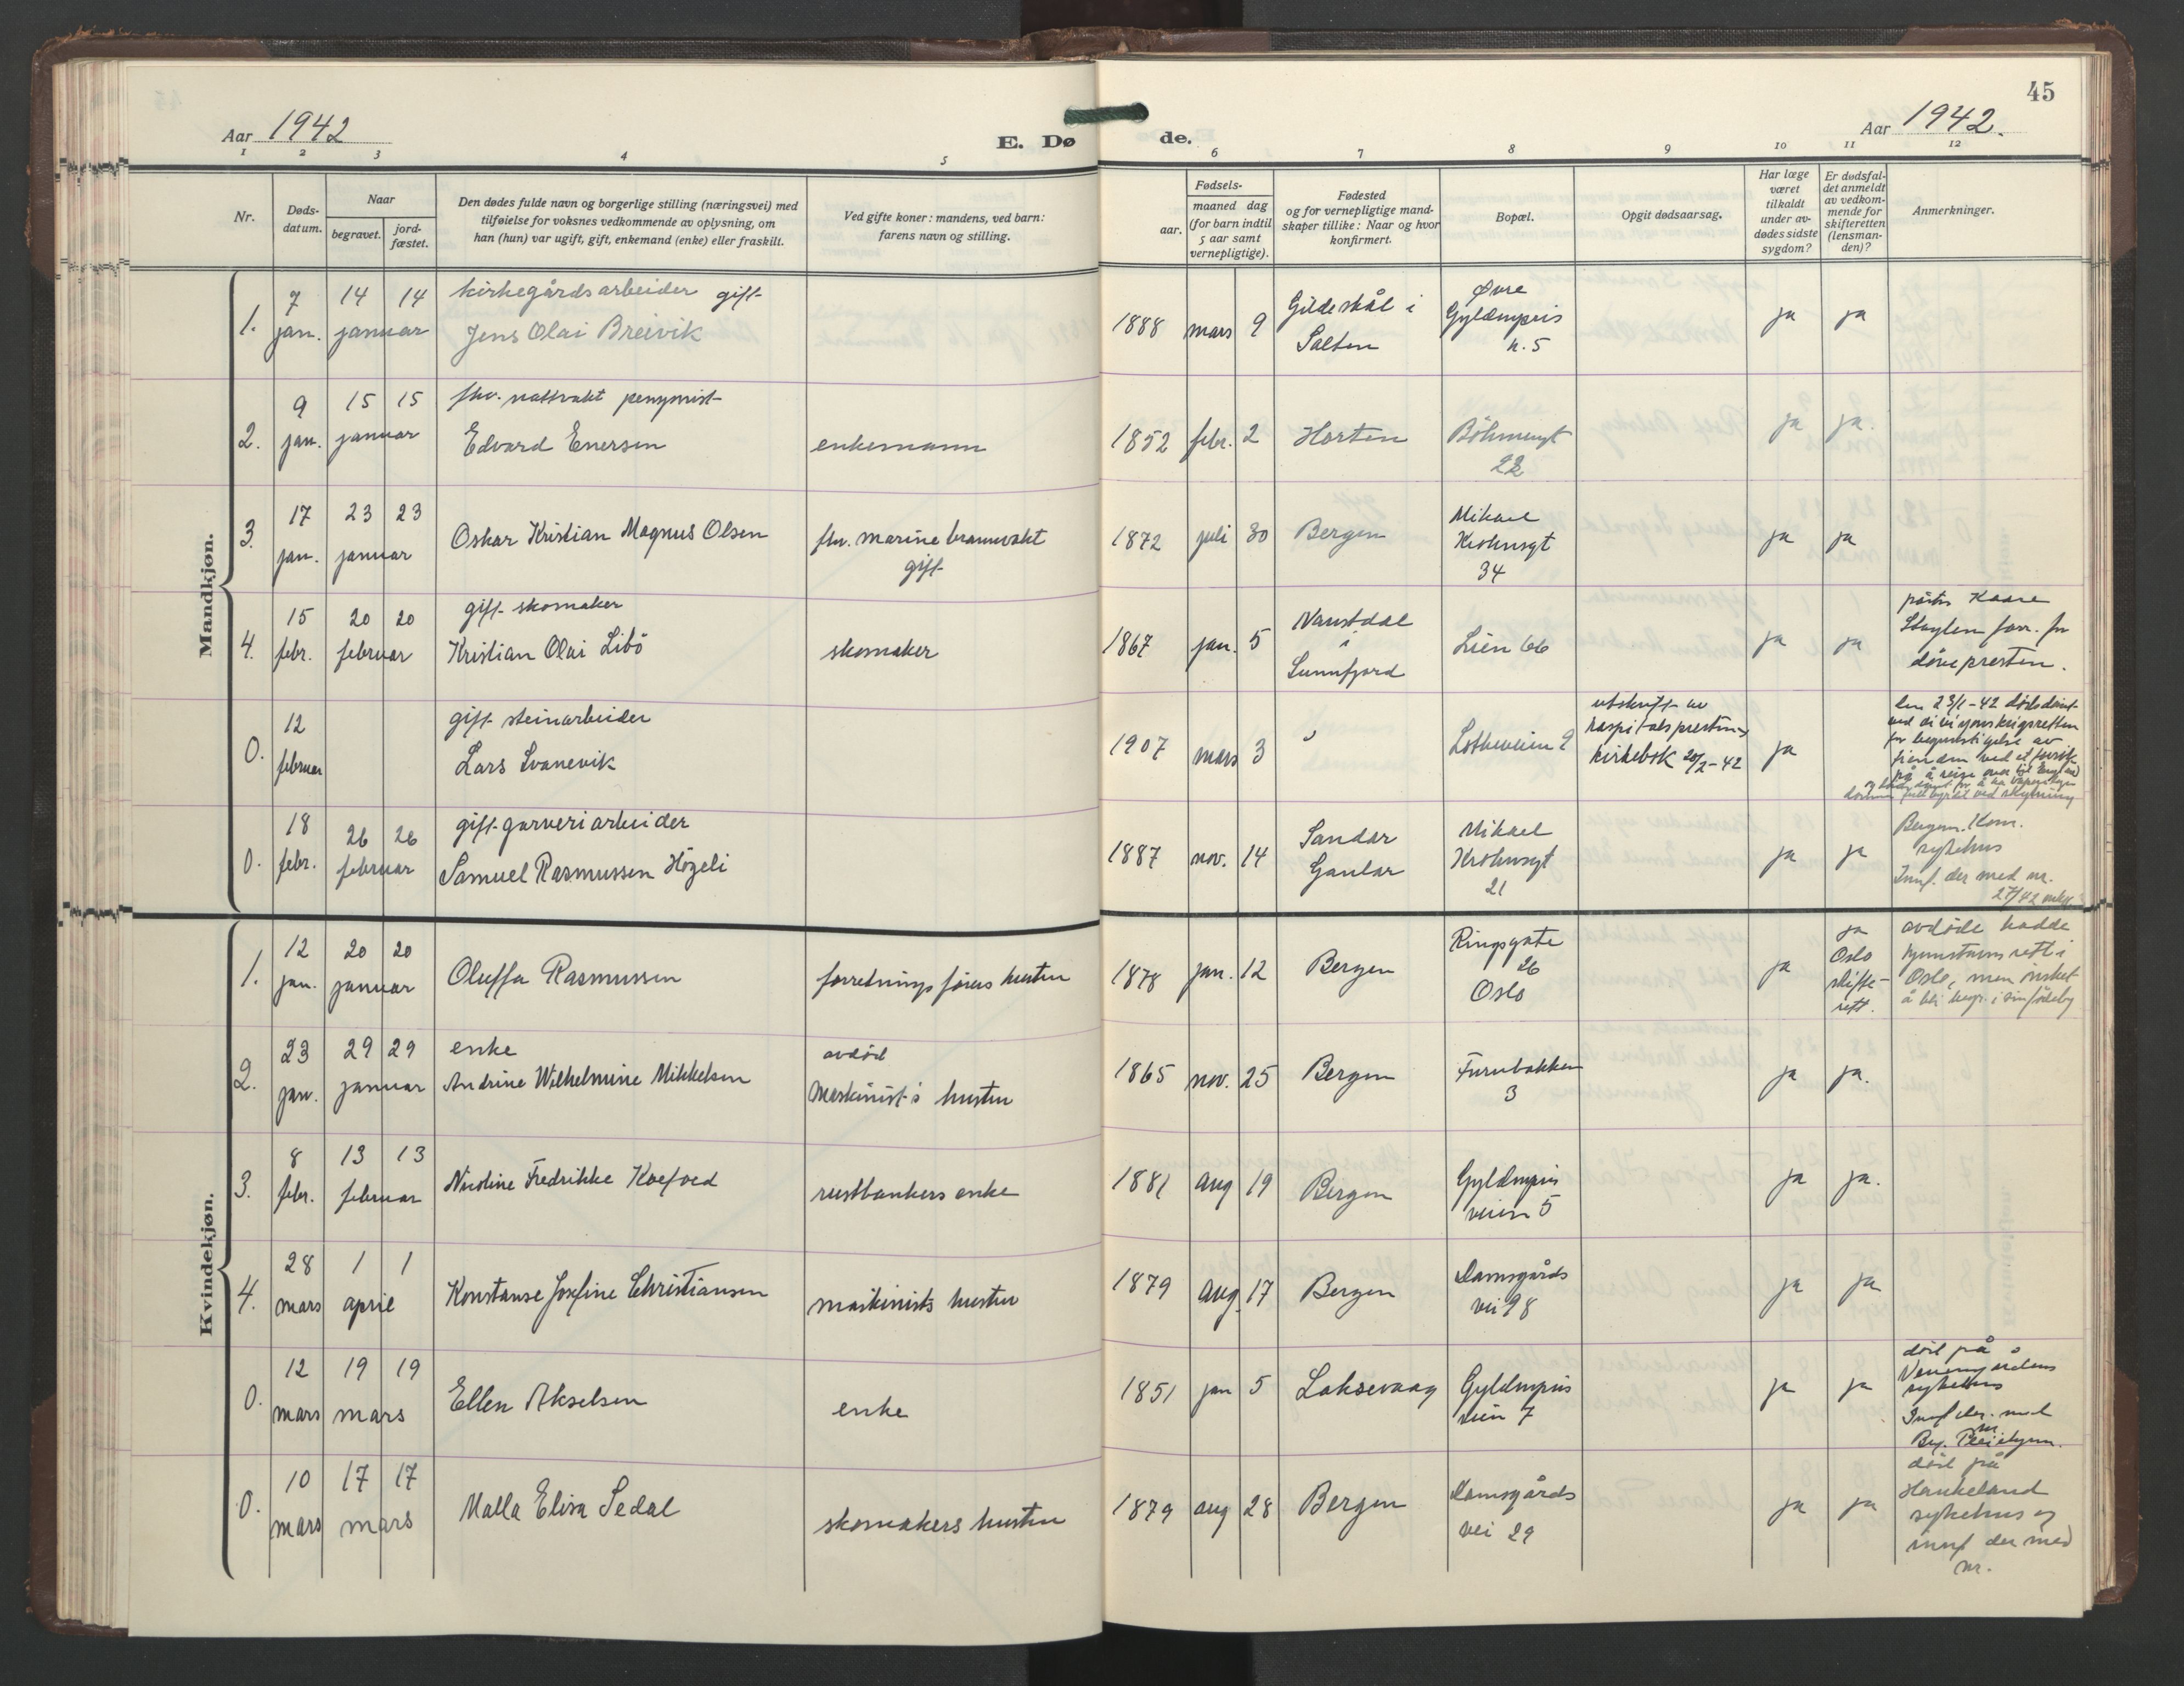 45
Aar 1942
E. Dø
de.
Aar 1942.
1 2 3 4 5
6 7 8 9 10 11 12
Nr.
Døds-
datum.
Naar
begravet.
jord-
fæstet.
Den dødes fulde navn og borgerlige stilling (næringsvei) med
tilføielse for voksnes vedkommende av oplysning, om
han (hun) var ugift, gift, enkemand (enke) eller fraskilt.
Ved gifte koner: mandens, ved barn:
farens navn og stilling.
Fødsels-
aar.
maaned dag
(for barn indtil
5 aar samt
vernepligtige).
Fødested
og for vernepligtige mand-
skaper tillike: Naar og hvor
konfirmert.
Bopæl.
Opgit dødsaarsag.
Har læge
været
tilkaldt
under av-
dødes sidste
sygdom?
Er dødsfal-
det anmeldt
av vedkom-
mende for
skifteretten
(lensman-
den)?
Anmerkninger.
Mandkjøn.
1.
7 14 14
jan. januar
kirkegårdsarbeider gift
Jens Olai Breivik
1888 mars 9
Gildeskål i
Salten
Øvre
Gyldenpris
n. 5
ja ja
2.
9 15 15
jan. januar
fhv. nattvakt pensjonist
Edvard Enersen
enkemann
1852 febr. 2
Horten
Böhmergt
22
ja ja.
3.
17 23 23
jan. januar
Oskar Kristian Magnus Olsen
fhv. marine brannvakt
gift
1872 juli 30
Bergen
Mikael
Krohnsgt
34
ja ja
4.
15 20 20
febr. februar
gift skomaker
Kristian Olai Libö
skomaker
1867 jan. 5
Naustdal
i
Sunnfjord
Lien 66
ja ja
Kaare
forr. for
dövepresten.
0.
12
februar
gift steinarbeider
Lars Svanevik
1907 mars 3
"
Lotheveien 9
utskrift av
hospitalsprestens
kirkebok 20/2-42
ja
den 23/1-42 dödsdömt
ved divisjonskrigsretten
for begunstigelse av
fienden ved et forsök
på å reise over til England
ved skytning
0.
18 26 26
febr. februar
gift garveriarbeider
Samuel Rasmussen Högeli
1887 nov. 14
Sandar
Gaular
Mikael
Krohnsgt
21
ja ja
Bergen. Kom.
sykehus
Innf. der med nr.
27/42
Kvindekjøn.
1.
12 20 20
jan. januar
Oluffa Rasmussen
forretningsförers hustru
1878 jan. 12
Bergen
Ringsgate
26
Oslo
ja
ja
Oslo
skifte-
rett.
avdöde hadde
hjemstavnsrett i
Oslo, men önsket
å bli begr. i sin födeby
2.
23 29 29
jan. januar
enke
Andrine Wilhelmine Mikkelsen
avdöd
maskinist's hustru
1865 nov. 25
Bergen
Furubakken
3
ja ja.
3.
8 13 13
febr. februar
Nicoline Fredrikke Koefoed
rustbankers enke
1881 aug 19
Bergen
Gyldenpris
veien 5
ja ja.
4.
28 1 1
mars april
Konstanse Josefine Christiansen
maskinists hustru
1879 aug. 17
Bergen
Damsgårds
vei 98
ja ja
0.
12 19 19
mars mars
Ellen Akselsen
enke
1851 jan 5
Laksevaag
Gyldenpris
veien 7
ja ja
död på
sykehus
Innf der. med
nr.
0.
10 17 17
mars mars
Malla Elisa Sedal
skomakers hustru
1879 aug 28
Bergen
Damsgårds
vei 29
ja ja
död på
Haukeland
sykehus og
innf der med
nr.